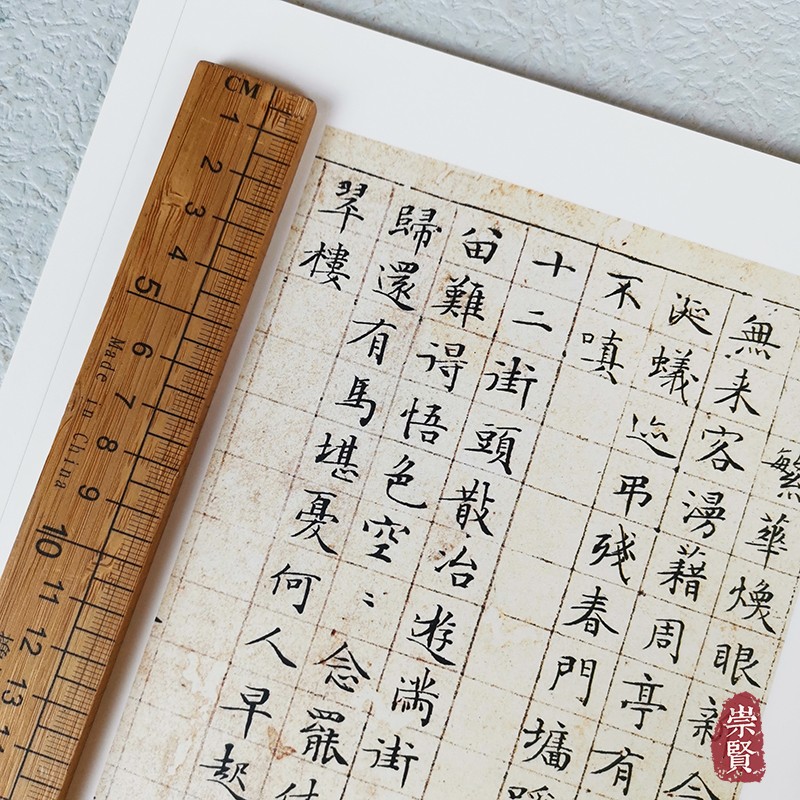 繁華煥眼新今
無来客漫藉周亭有
涎蟻迹弔残春門墉
不嗔
十二街頭散冶遊滿街
畄難得悟色空〻念罷
歸還有馬堪憂何人早起
翠樓
CM
1 2 3 4 5 6 7 8 9 10 11 12 13
Made in China
崇賢